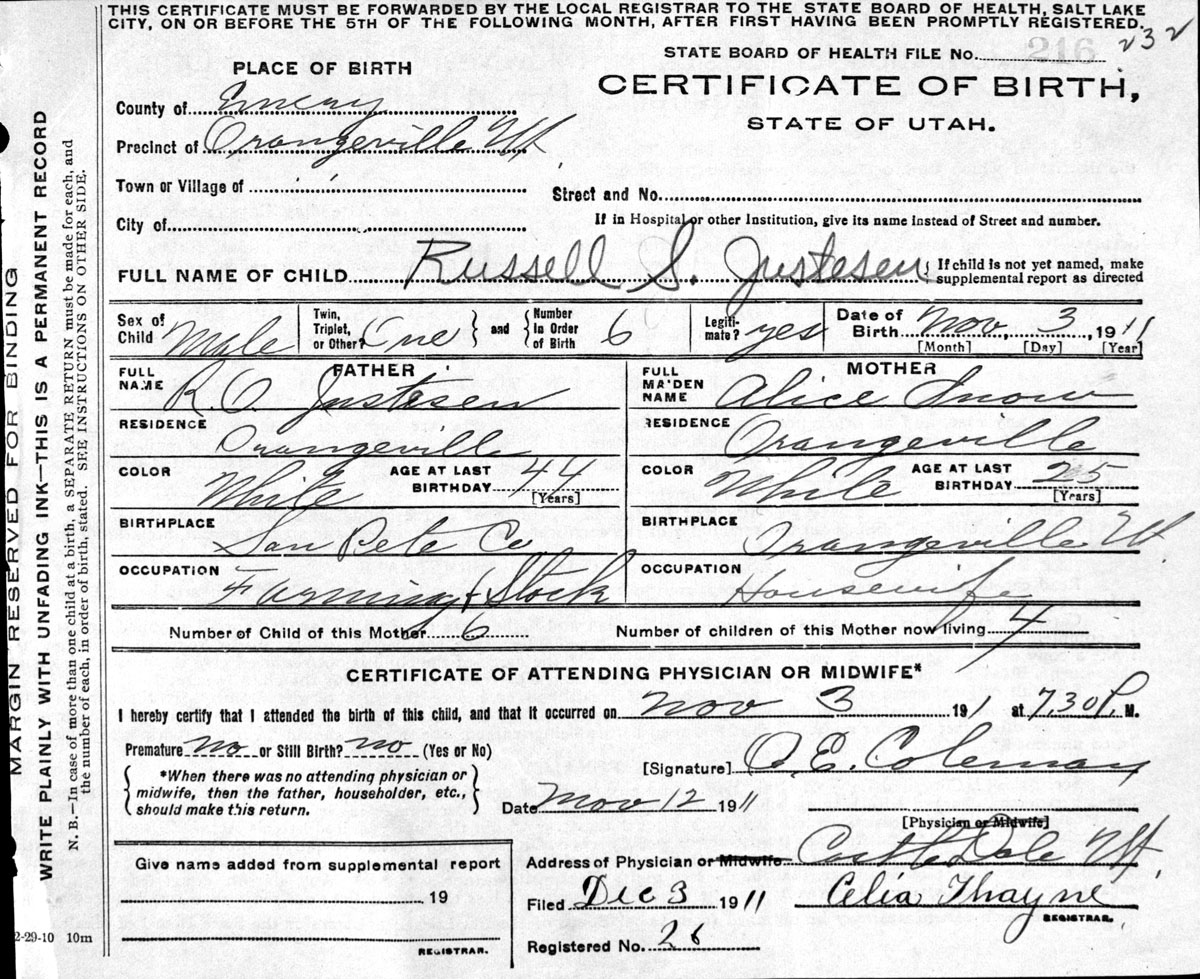 THIS CERTIFICATE MUST BE FORWARDED BY THE LOCAL REGISTRAR TO THE STATE BOARD OF HEALTH, SALT LAKE
CITY, ON OR BEFORE THE 5TH OF THE FOLLOWING MONTH, AFTER FIRST HAVING BEEN PROMPTLY REGISTERED.
232
STATE BOARD OF HEALTH FILE No. 216
CERTIFICATE OF BIRTH,
STATE OF UTAH.
PLACE OF BIRTH
County of Emery
Precinct of Orangeville Ut
Town or Village of
Street and No.
City of
If in Hospital or other Institution, give its name instead of Street and number.
FULL NAME OF CHILD Russell S. Justesen { If child is not yet named, make
supplemental report as directed
Sex of Child Male
Twin, Triplet, or Other? One } and { Number In Order of Birth 6
Legiti-mate? yes
Date of Birth Nov. 3 1911
[Month] [Day] [Year]
FATHER
FULL NAME R. O. Justesen
RESIDENCE Orangeville
COLOR White AGE AT LAST BIRTHDAY 44
[Years]
BIRTHPLACE San Pete Co
OCCUPATION Farming & Stock
MOTHER
FULL MA'DEN NAME Alice Snow
RESIDENCE Orangeville
COLOR White AGE AT LAST BIRTHDAY 25
[Years]
BIRTHPLACE Orangeville Ut
OCCUPATION Housewife
Number of Child of this Mother 6 Number of children of this Mother now living 4
CERTIFICATE OF ATTENDING PHYSICIAN OR MIDWIFE*
I hereby certify that I attended the birth of this child, and that it occurred on Nov 3 191 1 at 7.30 P. M.
Premature no or Still Birth? no (Yes or No)
{ *When there was no attending physician or
midwife, then the father, householder, etc.,
should make this return. }
[Signature] O. E. Coleman
Date Nov 12 1911
[Physician or Midwife]
Address of Physician or Midwife Castle Dale Ut.
Filed Dec 3 1911 Celia Thayne
REGISTRAR.
Registered No. 26
Give name added from supplemental report
19
REGISTRAR.
2-29-10 10m
MARGIN RESERVED FOR BINDING
WRITE PLAINLY WITH UNFADING INK—THIS IS A PERMANENT RECORD
N. B.—In case of more than one child at a birth, a SEPARATE RETURN must be made for each, and
the number of each, in order of birth, stated. SEE INSTRUCTIONS ON OTHER SIDE.